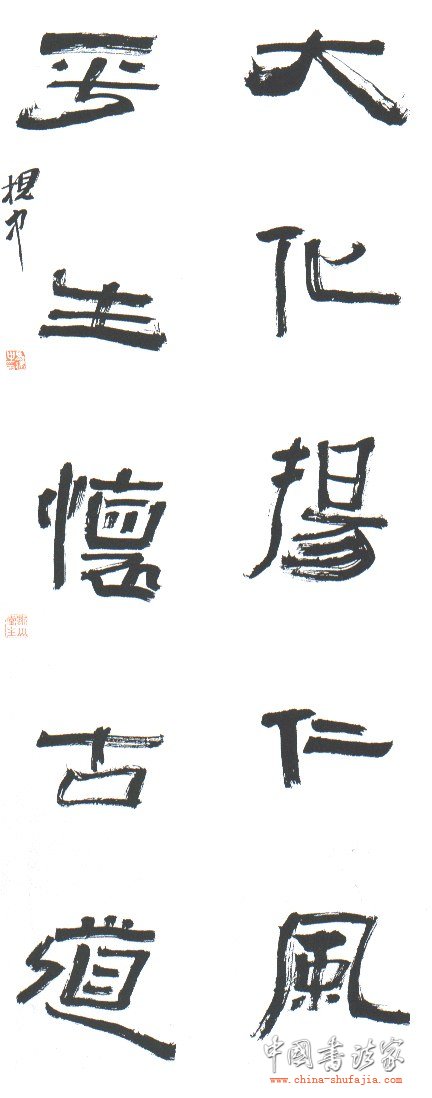 大化揚仁風
平生懷古道
中國書法家
www.china-shufajia.com